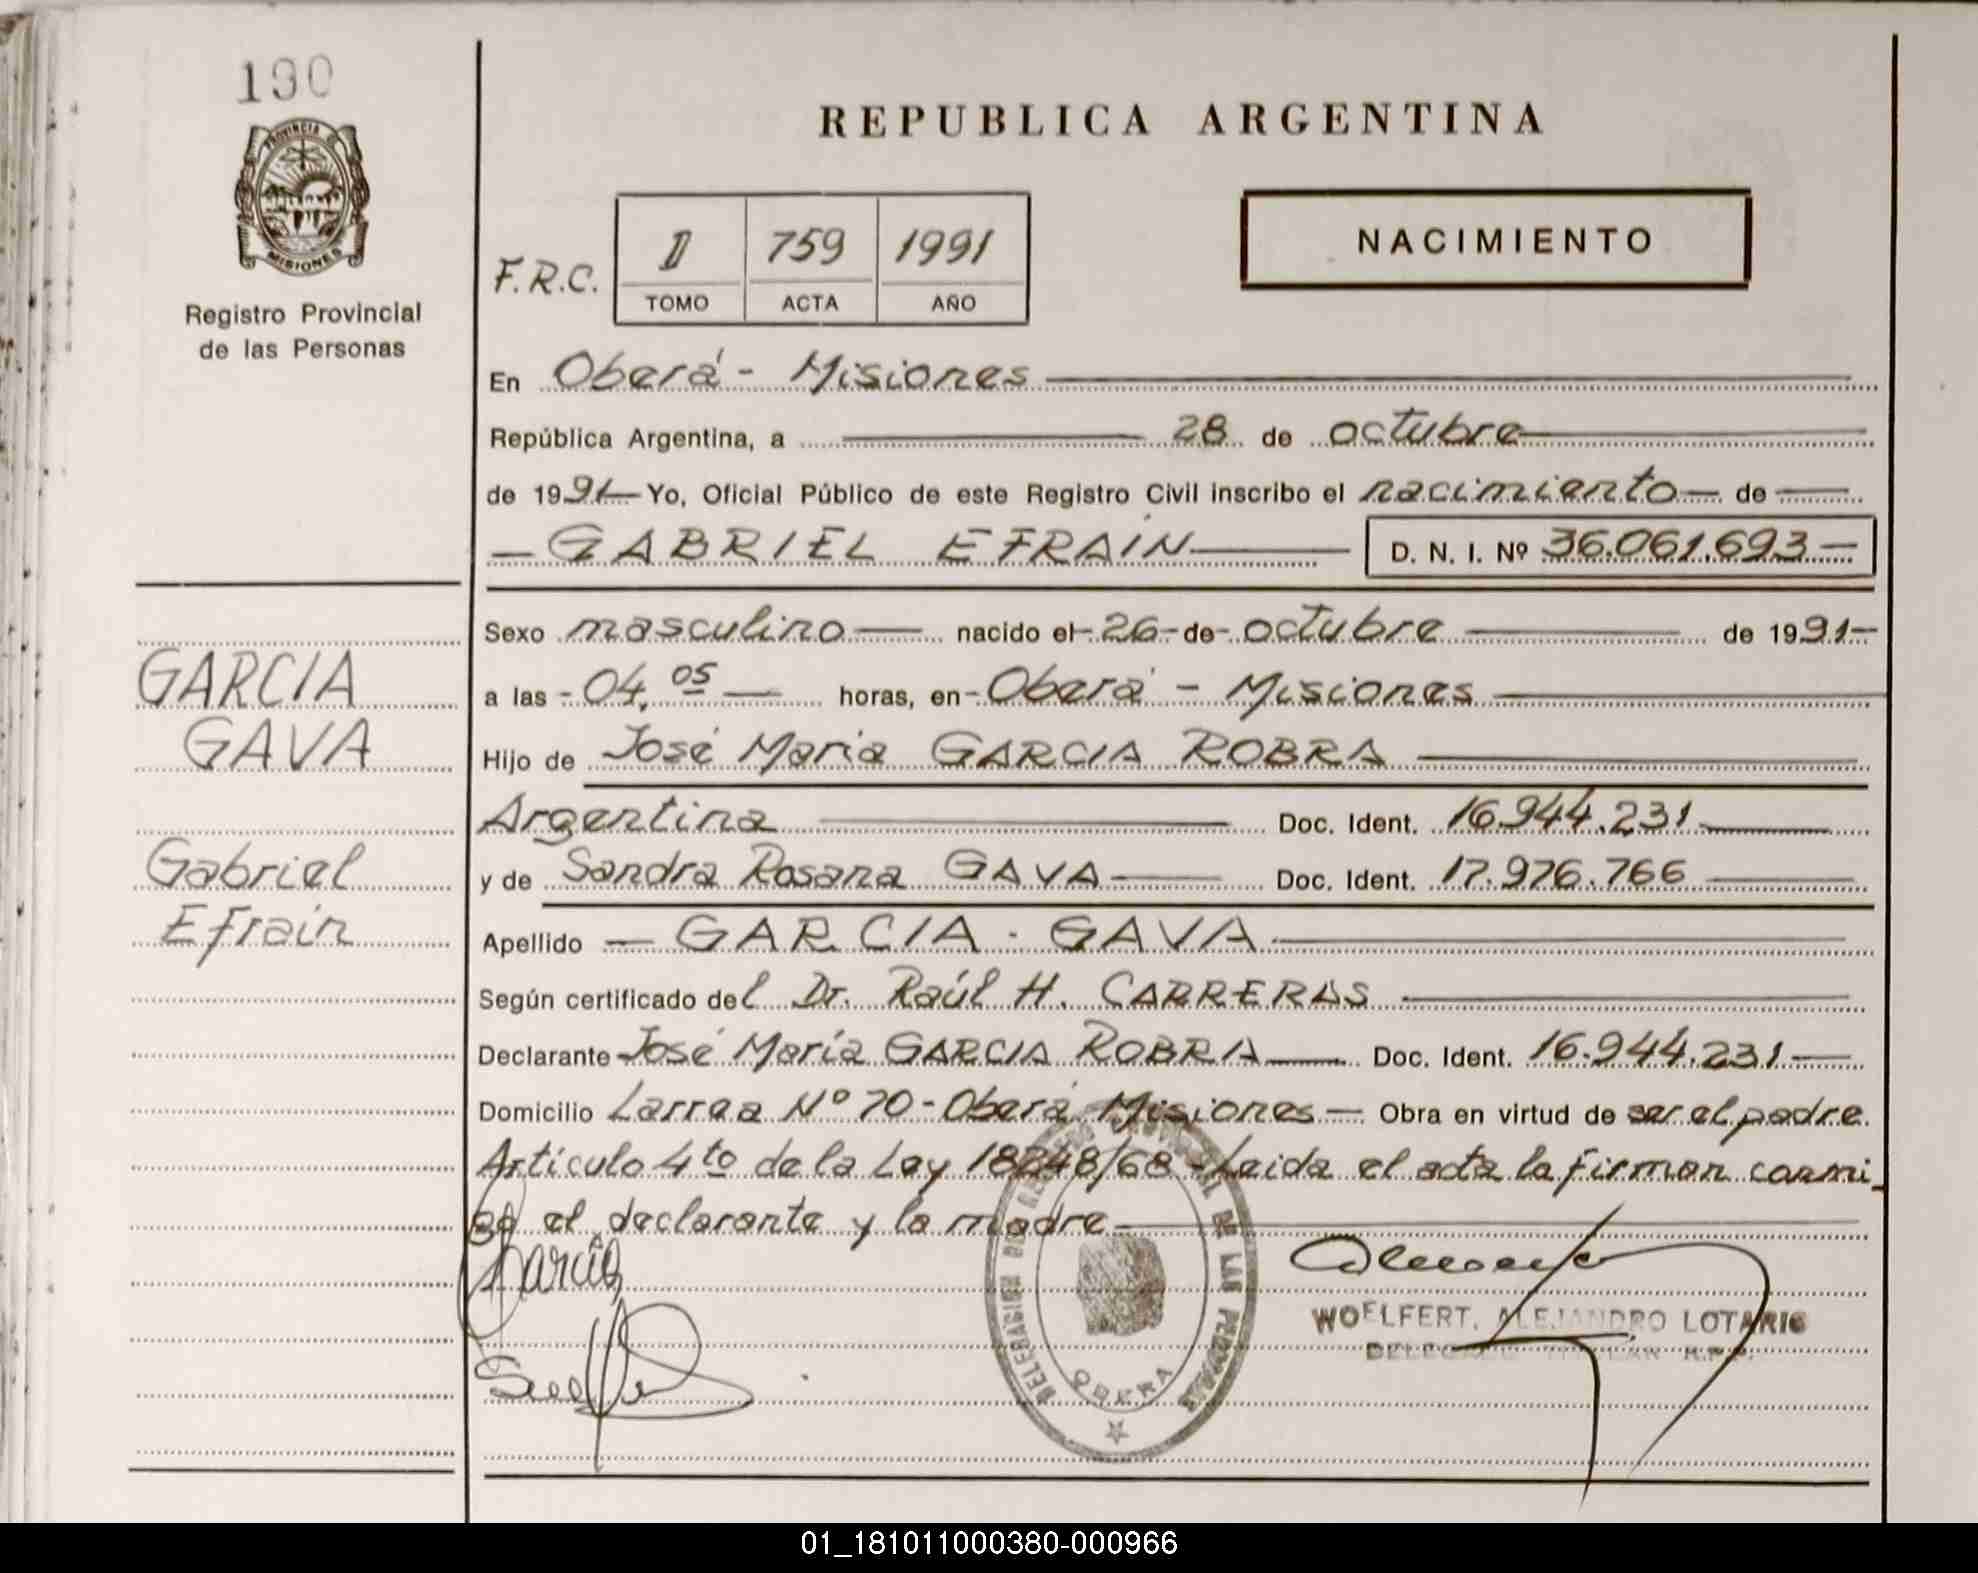 190
PROVINCIA DE
MISIONES
Registro Provincial
de las Personas
REPUBLICA ARGENTINA
NACIMIENTO
F.R.C.
D 759 1991
TOMO ACTA AÑO
En Oberá - Misiones
República Argentina, a 28 de octubre
de 1991 Yo, Oficial Público de este Registro Civil inscribo el nacimiento de
GABRIEL EFRAÍN D. N. I. Nº 36.061.693
Sexo masculino nacido el 26 de octubre de 1991
a las 04,05 horas, en Oberá - Misiones
Hijo de José Maria GARCIA ROBRA
Argentina Doc. Ident. 16.944.231
y de Sandra Rosana GAVA Doc. Ident. 17.976.766
Apellido GARCIA - GAVA
Según certificado del Dr. Raúl H. CARRERAS
Declarante José María GARCIA ROBRA Doc. Ident. 16.944.231
Domicilio Larrea Nº 70 - Oberá Misiones Obra en virtud de ser el padre.
Artículo 4to de la Ley 18248/68 - Leida el acta la firman conmi-
go el declarante y la madre
GARCIA
GAVA
Gabriel
Efraín
Garcia
WOELFERT, ALEJANDRO LOTARIO
DELEGADO TITULAR R.P.P.
DELEGACION DEL REGISTRO PROVINCIAL DE LAS PERSONAS
OBERA
01_181011000380-000966